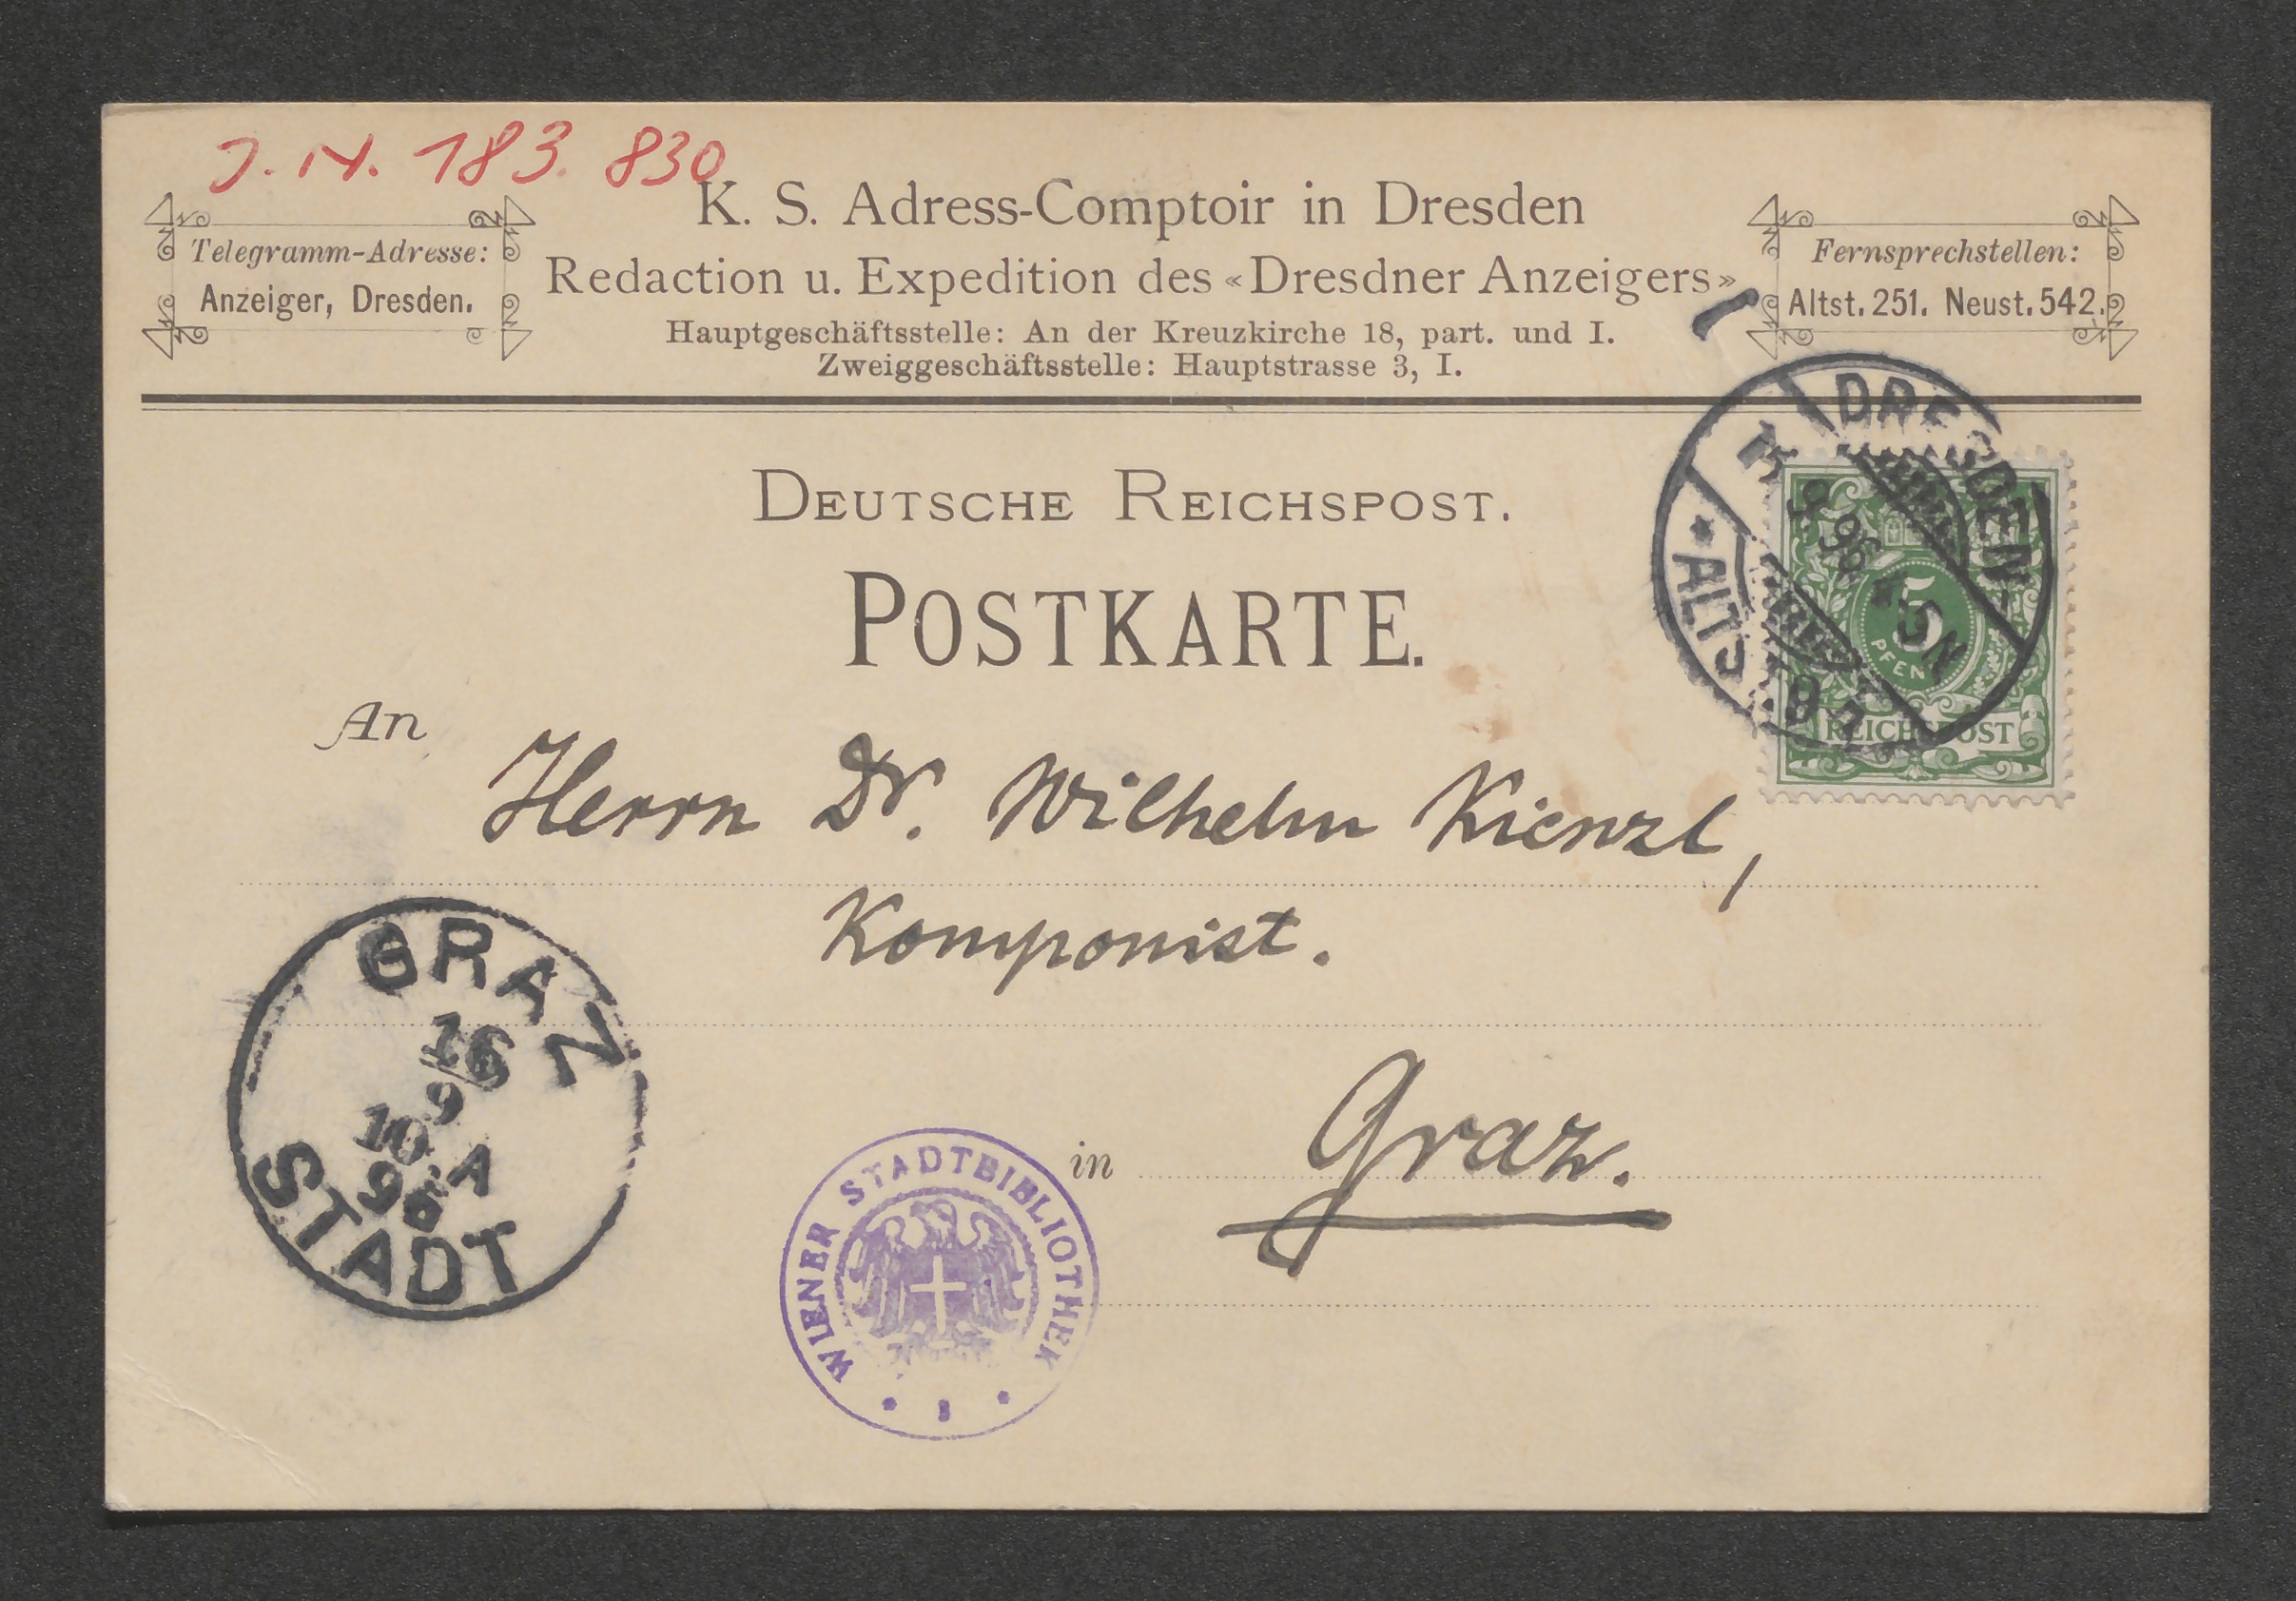 J. N. 183.830
K. S. Adress-Comptoir in Dresden
Redaction u. Expedition des «Dresdner Anzeigers»
Hauptgeschäftsstelle: An der Kreuzkirche 18, part. und I.
Zweiggeschäftsstelle: Hauptstrasse 3, I.
Telegramm-Adresse:
Anzeiger, Dresden.
Fernsprechstellen:
Altst. 251. Neust. 542.
DEUTSCHE REICHSPOST.
POSTKARTE.
DRESDEN-
* ALTST.
9. 96
N
5
PFENN
REICHSPOST
An
Herrn Dr. Wilhelm Kienzl,
Komponist.
in Graz.
GRAZ
16
9
10. A
96
STADT
WIENER STADTBIBLIOTHEK